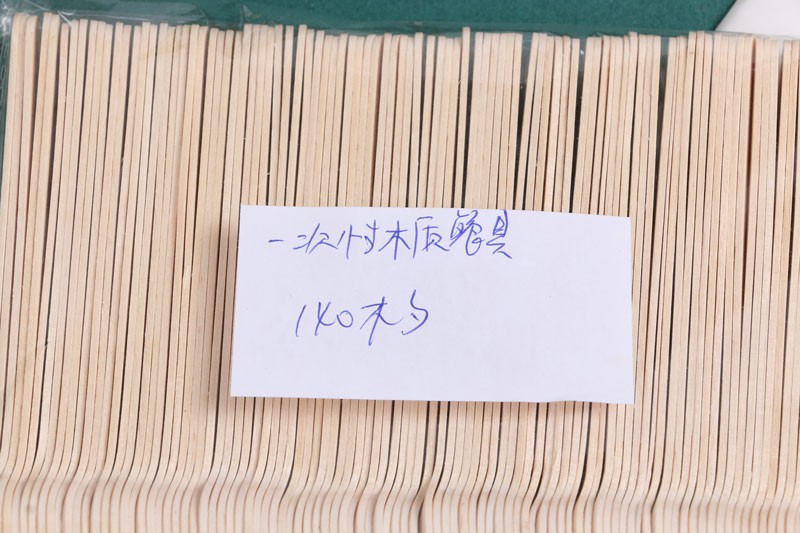 一次性木质餐具
140木勺